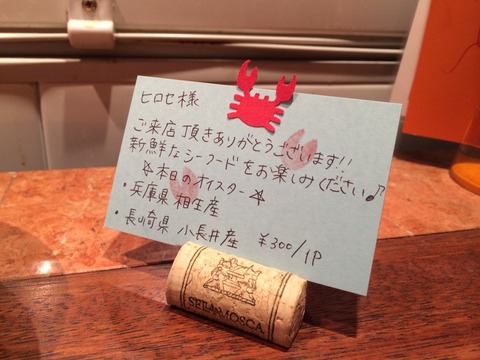 ヒロセ様
ご来店頂きありがとうございます!!
新鮮なシーフードをお楽しみください♪
☆本日のオイスター☆
・兵庫県 相生産
・長崎県 小長井産 ¥300/1P
SELLA&MOSCA